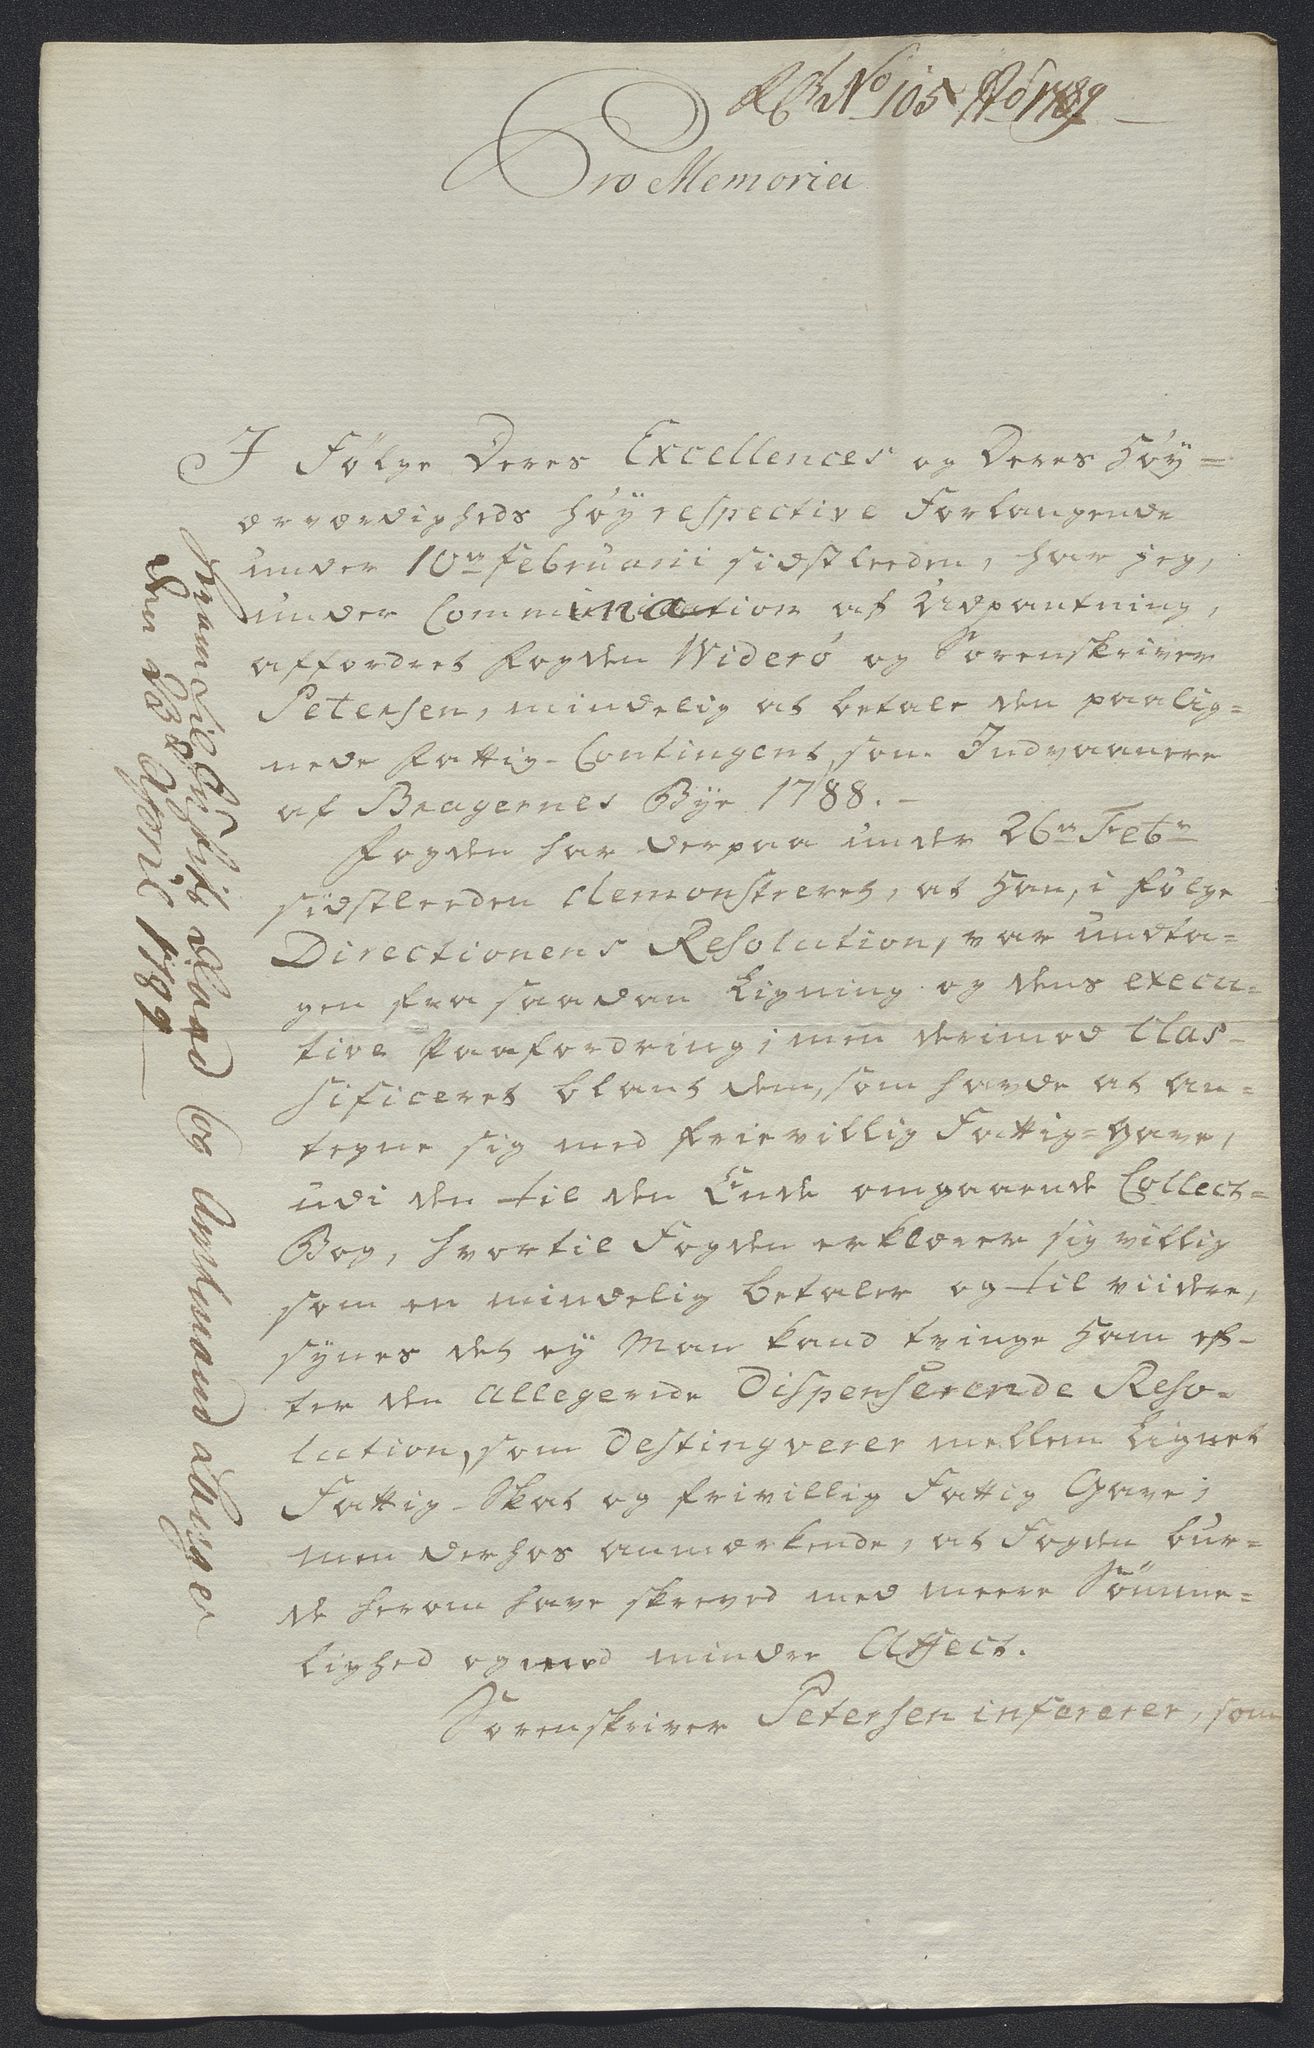 No 105 1789
Pro Memoria
I Følge Deres Excellences og Deres Høy=
ærværdigheds høyrespective Forlangende
under 10de Februarii sidstleeden, har jeg,
under Commination af Udpantning,
affordret Fogden Widerö og Sorenskriver
Petersen, mindelig at betale den paalig=
nede Fattig-Contingent, som Indvaanere
af Bragernes Bye 1788. -
Fogden har derpaa under 26de Febr
sidstleeden demonstreret, at Han, i Følge
Directionens Resolution, var undta=
gen fra saadan Ligning og dens execu=
tive Paafordring; men derimod Clas-
sificeret blant dem, som havde at an=
tegne sig med frievillig Fattig=Gave,
udi den til den Ende omgaaende Collect=
Bog, hvortil Fogden erklærer sig villig
som en mindelig betaler og til viidere,
synes det ey Man kand tvinge Ham ef-
ter den allegerede Dispenserende Reso-
lution, som Destingverer mellem Lignet
Fattig-Skat og frivillig Fattig Gave;
men derhos anmærkende, at Fogden bur=
de herom have skreved med meere Sömme=
lighed og med mindre Affect.
Sorenskriver Petersen infererer, som
Fremlie Stifts og Amtmand
den April 1789